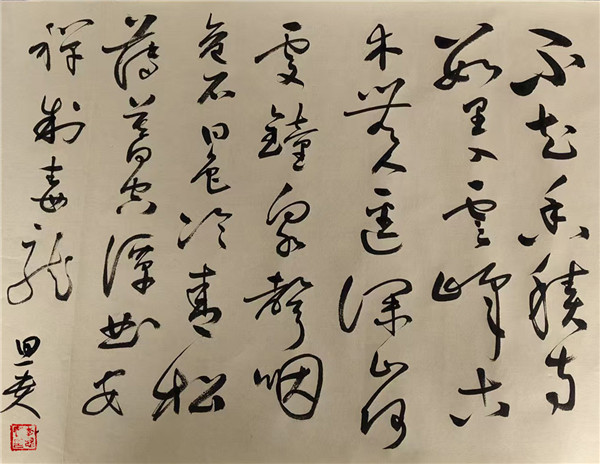 不知香積寺
數里入雲峰古
木無人逕深山何
處鐘泉聲咽
危石日色冷青松
薄暮空潭曲安
禪制毒龍